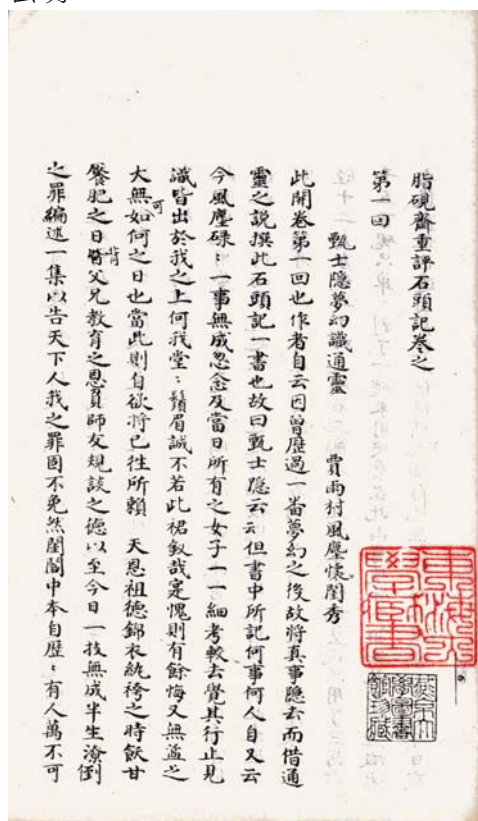 脂硯齋重評石頭記卷之
第一回
甄士隱夢幻識通靈　賈雨村風塵懷閨秀
此開卷第一回也作者自云因曾歷過一畨夢幻之後故將真事隱去而借通
靈之説撰此石頭記一書也故曰甄士隱云云但書中所記何事何人自又云
今風塵碌〻一事無成忽念及當日所有之女子一一細考較去覺其行止見
識皆出於我之上何我堂〻鬚眉誠不若此裙釵哉寔愧則有餘悔又無益之
大無可如何之日也當此則自欲將已往所賴　天恩祖德錦衣紈袴之時飫甘
饜肥之日背父兄教育之恩負師友規談之德以至今日一技無成半生潦倒
之罪編述一集以告天下人我之罪固不免然閨閣中本自歷〻有人萬不可